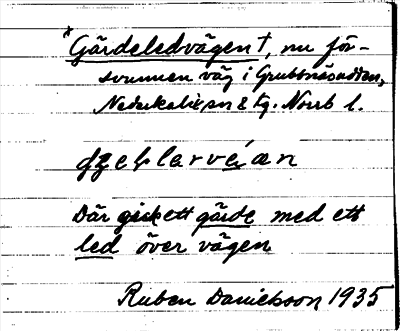 *Gärdeledvägen†, nu för-
svunnen väg i Grubbnäsudden,
Nederkalix sn & tg. Norrb l.
Där gick ett gärde med ett
led över vägen
Ruben Danielsson 1935